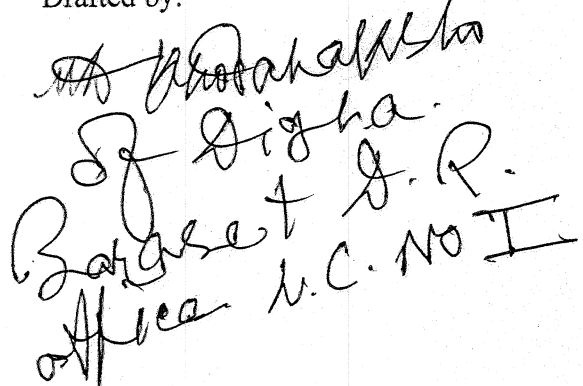 Drafted by:
Md
of Digha.
Baraset D. P.
office. L.C. No I